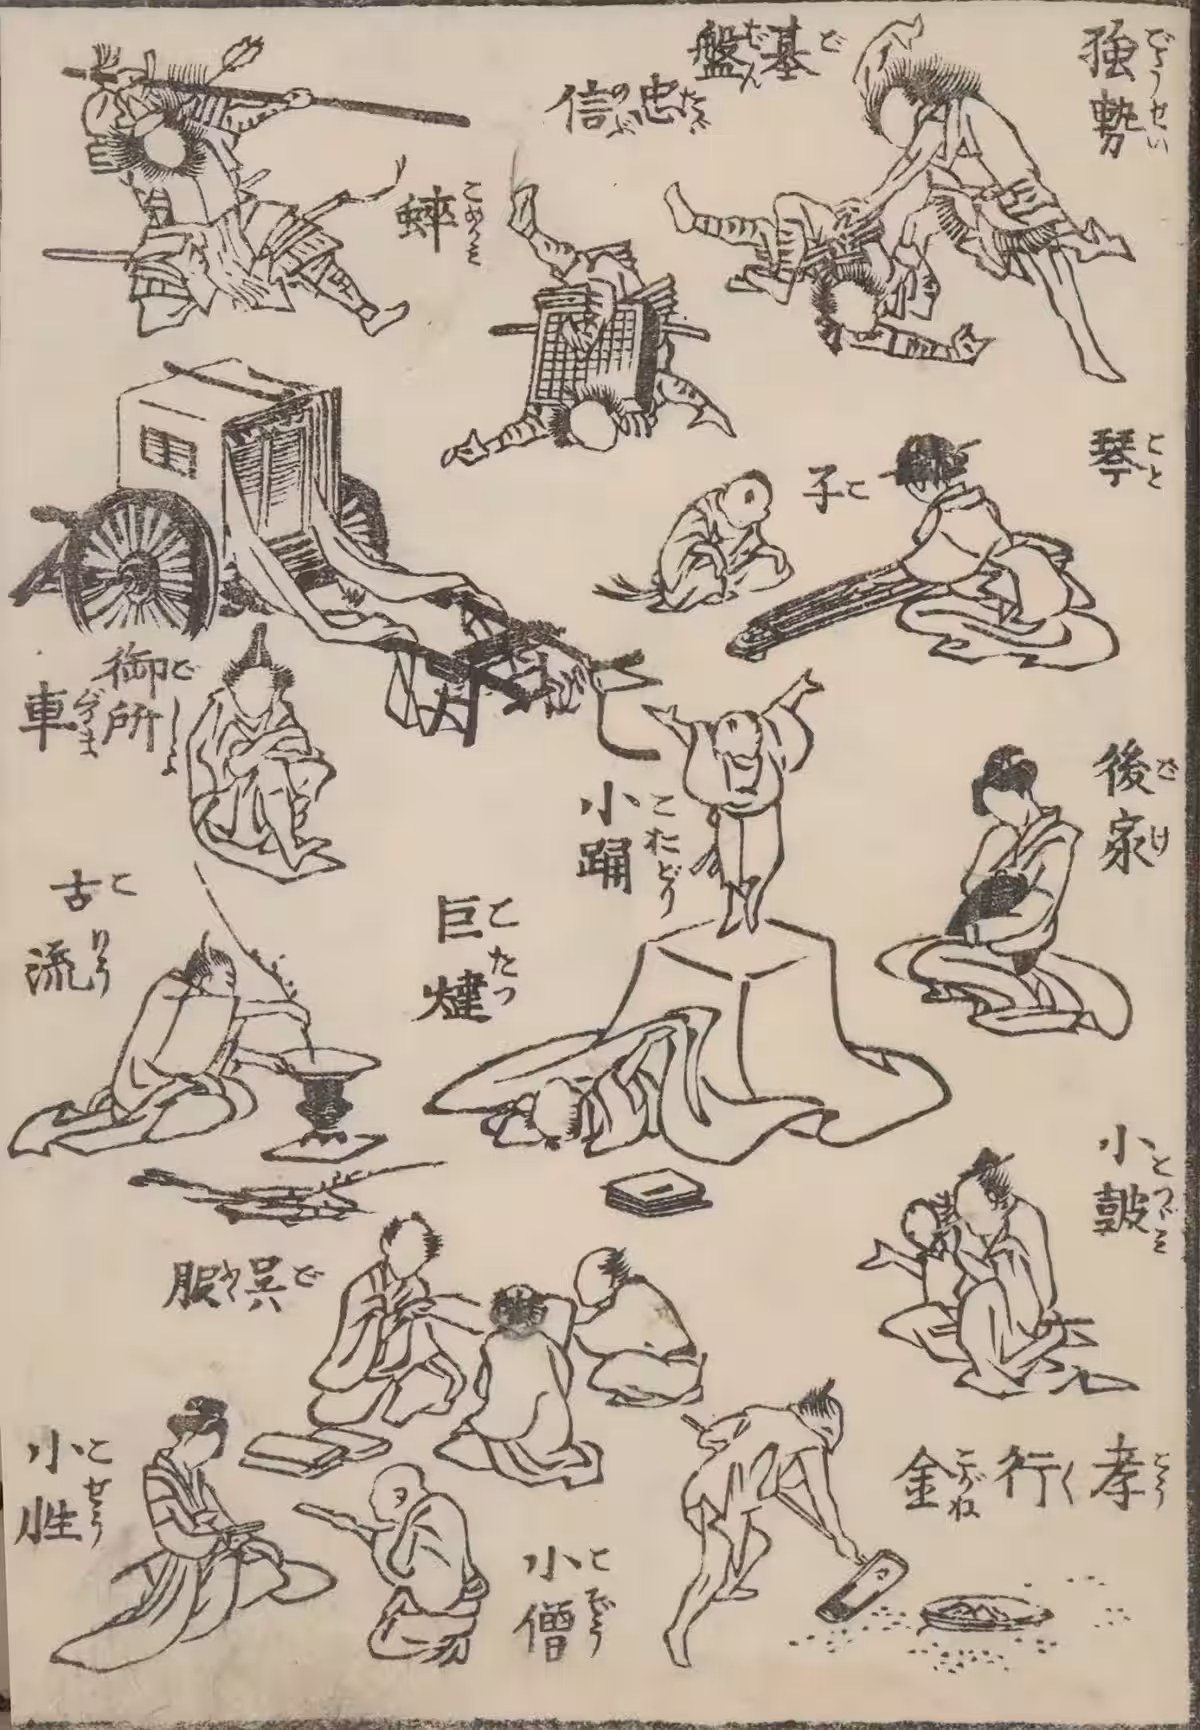 強勢 ごうせい
碁盤 ごばん
忠信 たゞのぶ
蟀 こめかみ
琴 こと
子 こ
御所車 ごしよぐるま
後家 ごけ
小踊 こおどり
古流 こりう
巨燵 こたつ
小鼓 こつゞミ
呉服 ごふく
孝行 こう〱
金 こがね
小性 こせう
小僧 こぞう